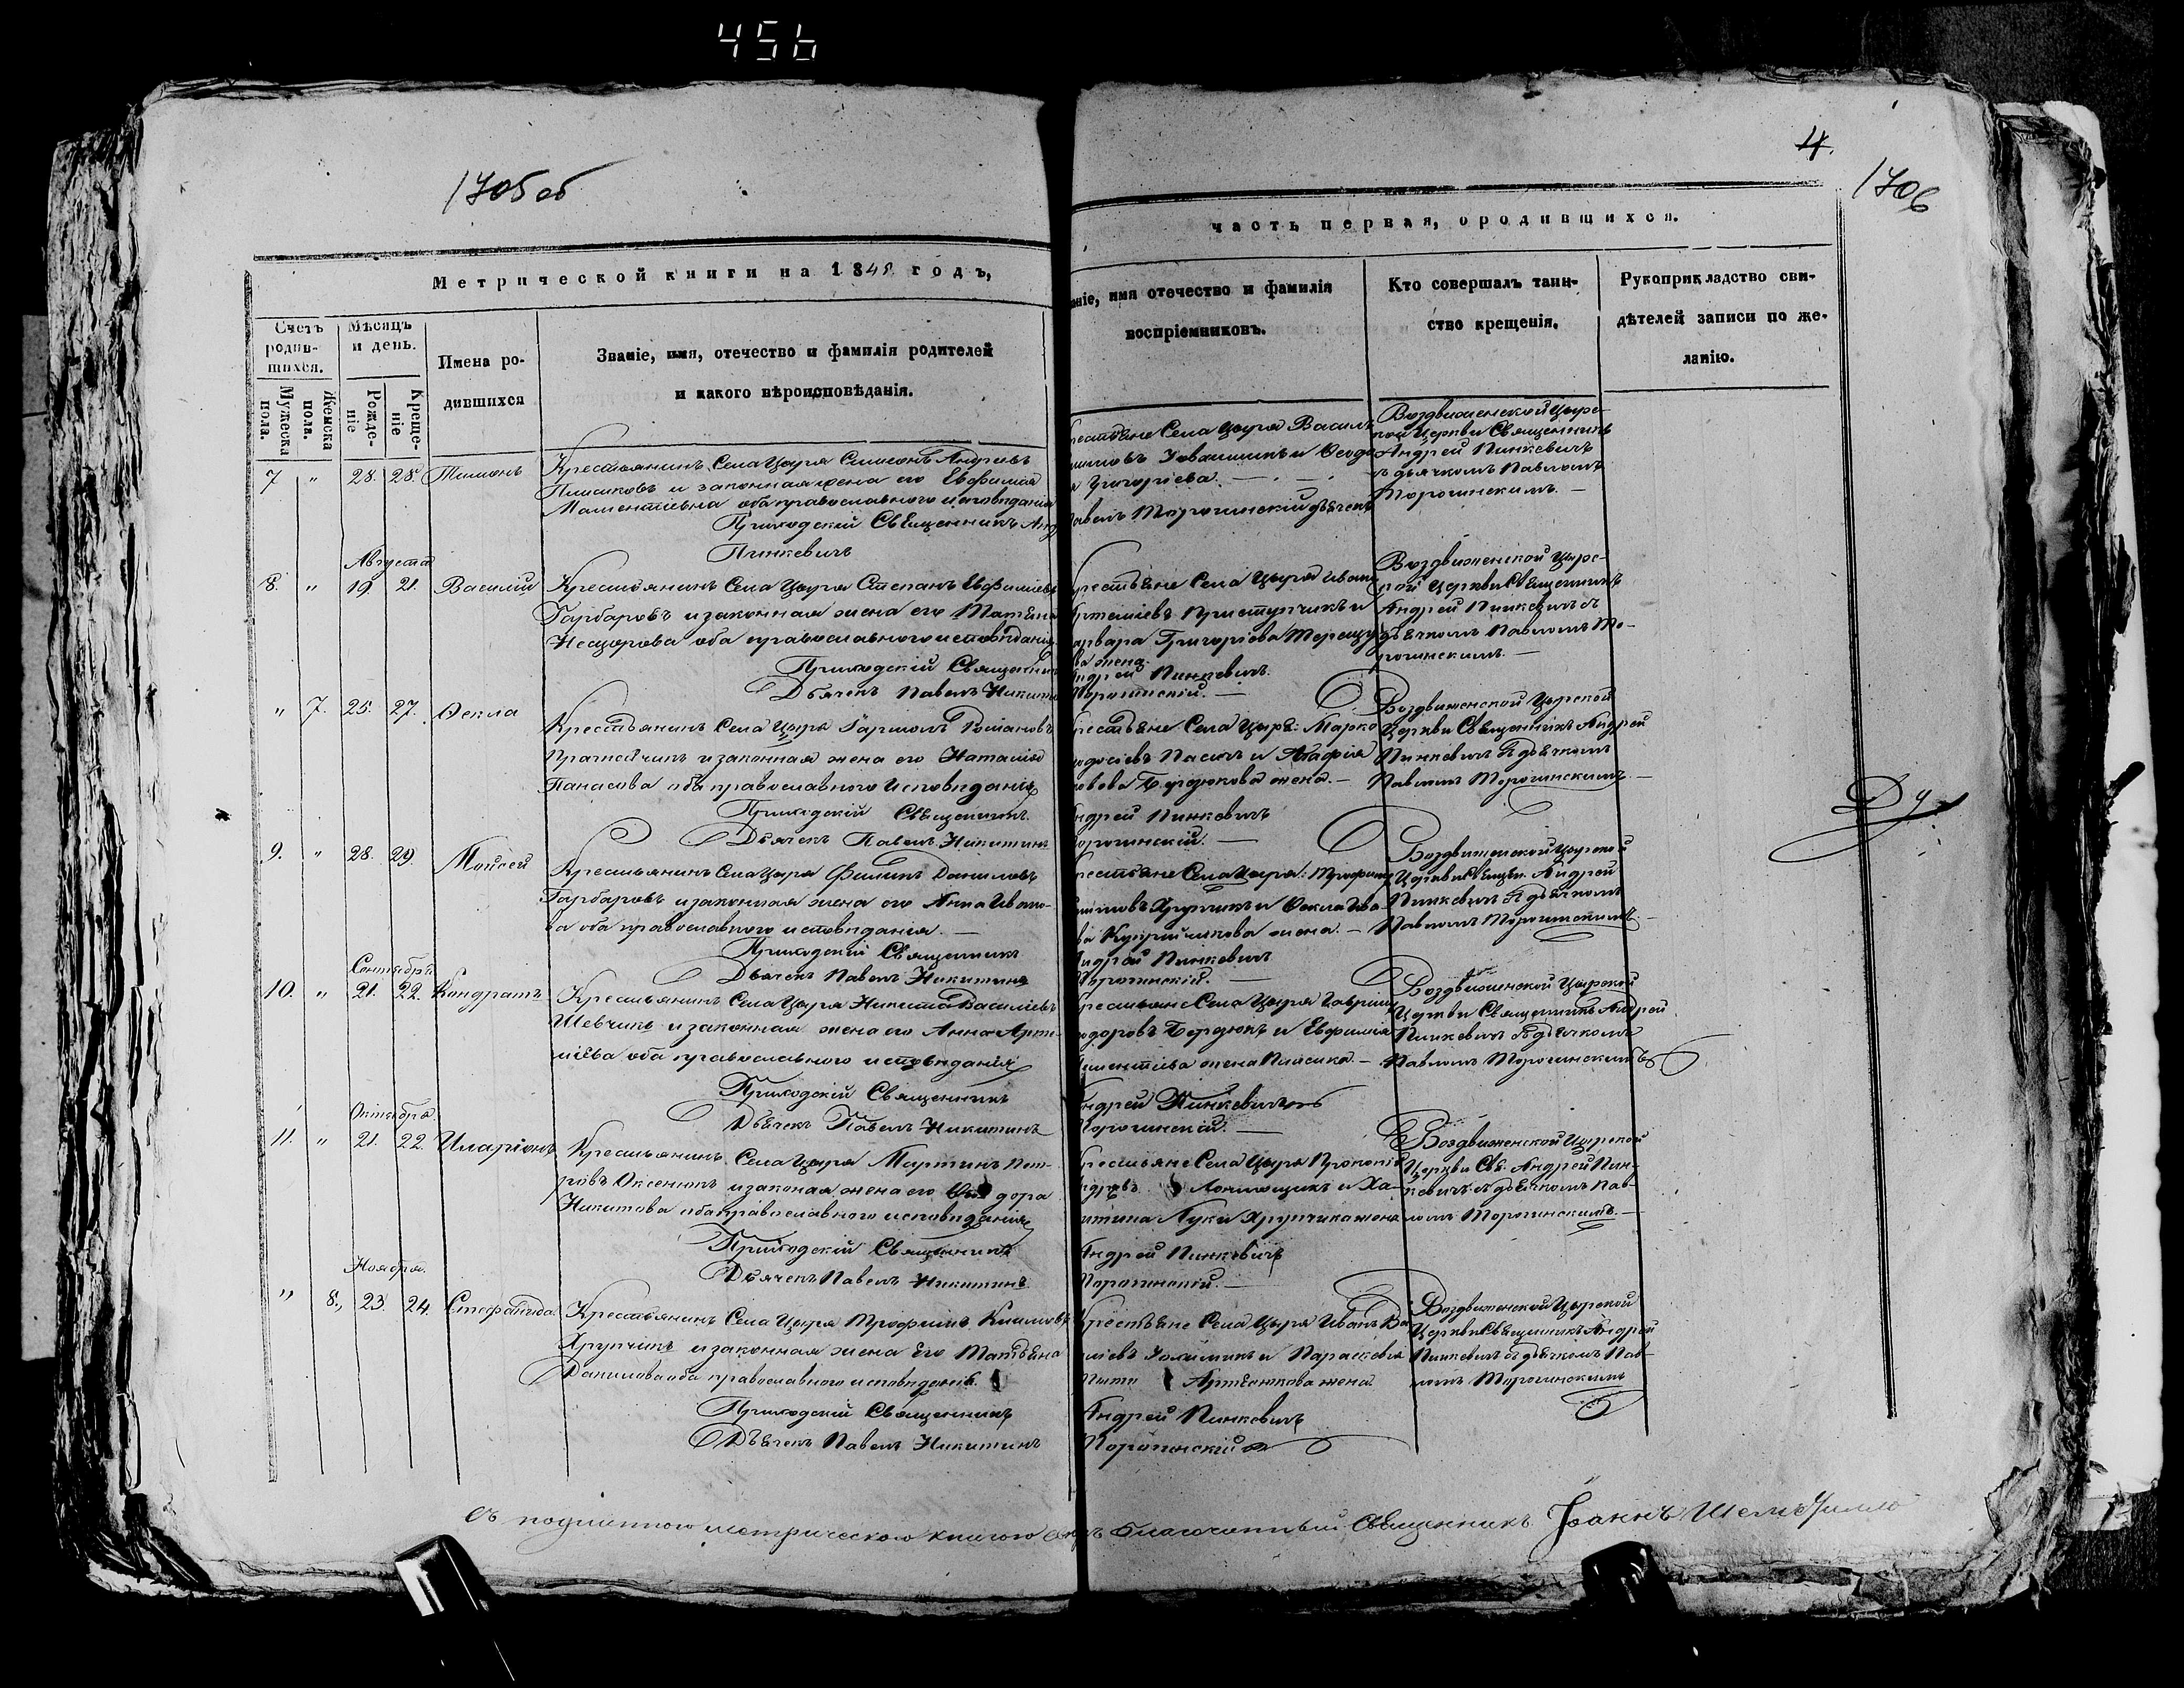 456
4.
1705 об
1706
Метрической книги на 1848 годъ,
часть первая, ородившихся.
Счетъ родив-
шихся.
Мужеска пола.
Женска пола.
Мѣсяцъ и день.
Рожде-
ніе
Креще-
ніе
Имена ро-
дившихся
Званіе, имя, отечество и фамилія родителей
и какого вѣроисповѣданія.
ніе, имя отечество и фамилія
воспріемниковъ.
Кто совершалъ таин-
ство крещенія.
Рукоприкладство сви-
дѣтелей записи по же-
ланію.
7 " 28. 28. Тимонъ
Крестьянинъ Села Цыря Симеонъ Андреевъ
и законная жена его Евфимія
оба православного исповѣданія
Приходскій Священникъ Анд
Пинкевичъ
рестьяне Села Цыря Васил
и Ѳеодо
я Григоріева. —
Павелъ Торогинскій дьячекъ
Воздвиженской Цырс-
кой Церкви Священникъ
Андрей Пинкевичъ
съ дьячкомъ Павломъ
Торогинскимъ. —
Августа
8. " 19. 21. Василій
Крестьянинъ Села Цыря Степанъ Евфиміевъ
Гарбаровъ и законная жена его Татьяна
Несторова оба православного исповѣданія
Приходскій Священник
Дьячекъ Павелъ Никити
Крестьяне Села Цыря Иван
Артеміевъ Приступчикъ и
арвара Григоріева
ва жена.
Андрей Пинкевичъ.
Торогинскій. —
Воздвиженской Цырс-
кой Церкви Священникъ
Андрей Пинкевичъ съ
дьячкомъ Павломъ То-
рогинскимъ. —
" 7. 25. 27. Ѳекла
Крестьянинъ Села Цыря Романовъ
и законная жена его Наталія
Панасова оба православного исповѣданія
Приходскій Священникъ.
Дьячекъ Павелъ Никитинъ
рестьяне Села Цыря: Марко
одосіевъ и Агафія
Бердюкова жена. —
Андрей Пинкевичъ
Торогинскій. —
Воздвиженской Цырской
Церкви Священникъ Андрей
Пинкевичъ съ дьячкомъ
Павломъ Торогинскимъ. —
9. " 28. 29. Мойсей
Крестьянинъ Села Цыря Филипъ Даниловъ
Гарбаровъ и законная жена его Анна Ивано-
ва оба православного исповѣданія. —
Приходскій Священникъ
Дьячекъ Павелъ Никитинъ
рестьяне Села Цыря: Трофим
Хрупчикъ и Ѳекла Ива
ва жена. —
Андрей Пинкевичъ
Торогинскій. —
Воздвиженской Цырской
Церкви Священ. Андрей
Пинкевичъ съ дьячкомъ
Павломъ Торогинскимъ. —
Сентября
10. " 21. 22. Кондратъ
Крестьянинъ Села Цыря Никита Василіевъ
Шевчикъ и законная жена его Анна Арте-
міева оба православного исповѣданія
Приходскій Священникъ
Дьячекъ Павелъ Никитинъ
рестьяне Села Цыря Гаврійл
одоровъ Бердюкъ и Евфимія
жена Плясика. —
Андрей Пинкевичъ
Торогинскій. —
Воздвиженской Цырской
Церкви Священникъ Андрей
Пинкевичъ съ дьячкомъ
Павломъ Торогинскимъ
Октября
11. " 21. 22. Иларіонъ
Крестьянинъ Села Цыря Мартинъ Пет-
ровъ Оксенюкъ и законая жена его дора
Никитова оба православного исповѣданія
Приходскій Священникъ
Дьячекъ Павелъ Никитинъ
рестьяне Села Цыря Прокопій
и Ха-
итина Луки Хрупчика жена
Андрей Пинкевичъ
Торогинскій. —
Воздвиженской Цырской
Церкви Свя. Андрей Пин-
кевичъ съ дьячкомъ Пав-
ломъ Торогинскимъ. —
Ноября.
" 8. 23. 24. Стефанида.
Крестьянинъ Села Цыря Трофимъ Климовъ
Хрупчикъ и законная жена его Татьяна
Данилова оба православного исповѣданія.
Приходскій Священникъ
Дьячекъ Павелъ Никитинъ
Крестьяне Села Цыря Иванъ Ва
иліевъ и Параскевія
жена
Андрей Пинкевичъ
Торогинскій
Воздвиженской Цырской
Церкви Священникъ Андрей
Пинкевичъ съ дьячкомъ Пав-
ломъ Торогинскимъ
Съ подлинною метрическою книгою Благочинный Священникъ Іоаннъ